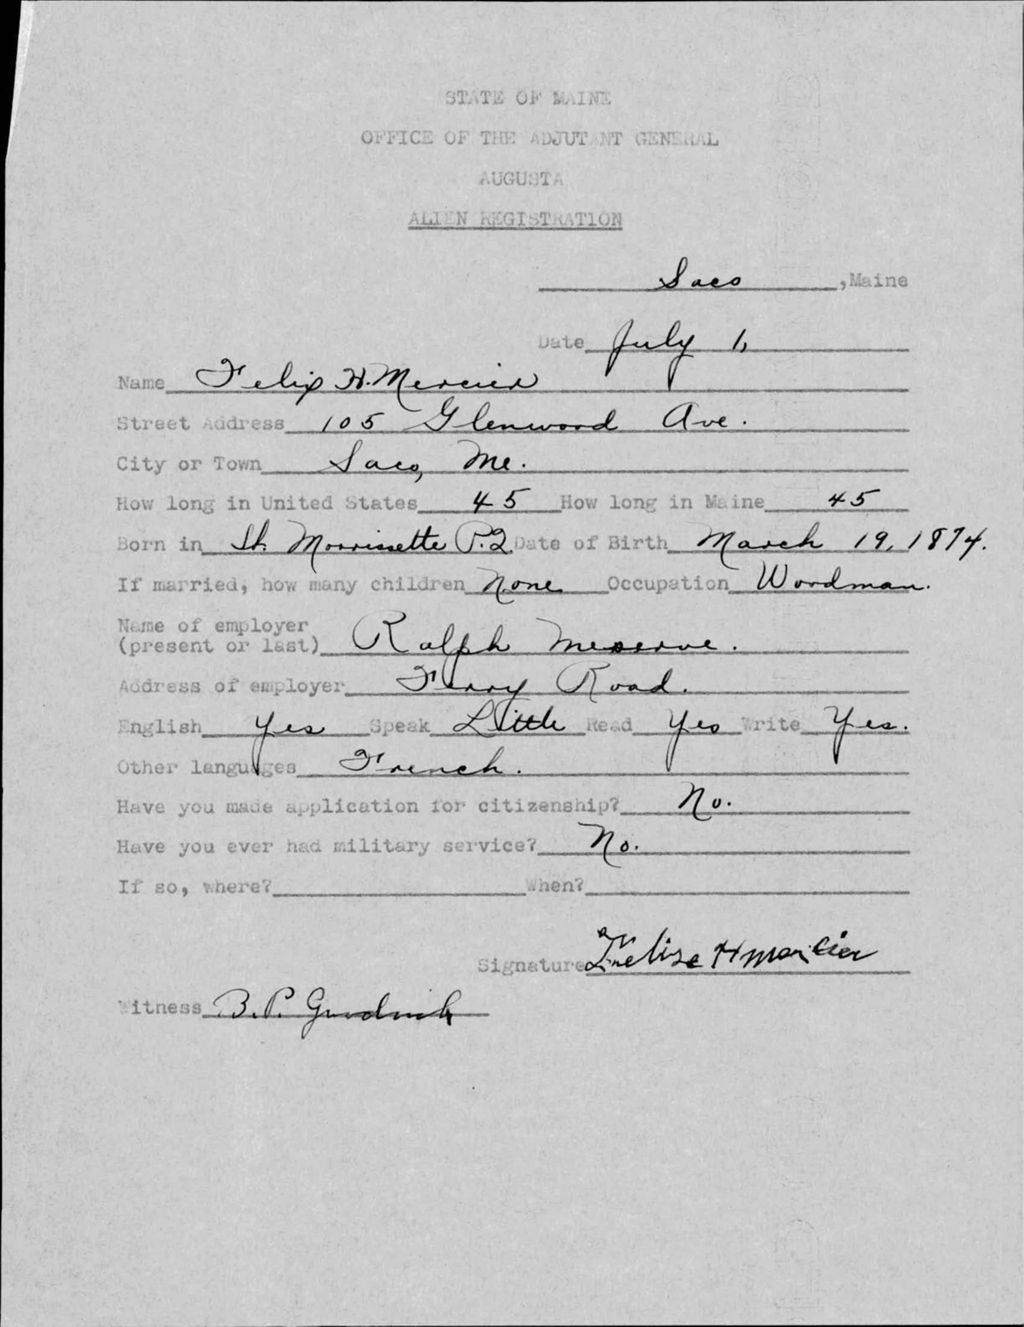 STATE OF MAINE
OFFICE OF THE ADJUTANT GENERAL
AUGUSTA
ALIEN REGISTRATION
Saco, Maine
Date July 1,
Name Felix H. Mercier
Street Address 105 Glenwood Ave.
City or Town Saco, Me.
How long in United States 45 How long in Maine 45
Born in St. Morrissette P.Q. Date of Birth March 19, 1874.
If married, how many children None Occupation Woodman.
Name of employer
(present or last) Ralph Meserve.
Address of employer Ferry Road.
English Yes Speak Little Read Yes Write Yes.
Other languages French.
Have you made application for citizenship? No.
Have you ever had military service? No.
If so, where? When?
Signature H Mercier
Witness B. P.